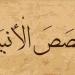 صَصَ الْأَنبِي